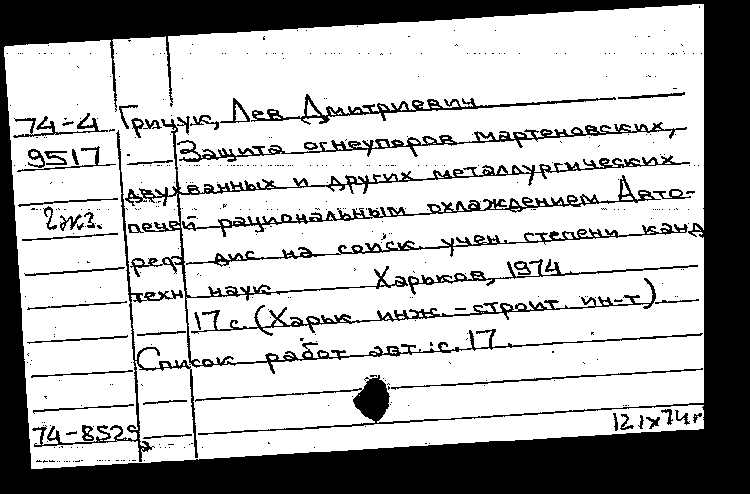 74-4 Грицук, Лев Дмитриевич
9517 Защита огнеупоров мартеновских,
двухванных и других металлургических
2 экз. печей рациональным охлаждением Авто-
реф дис на соиск. учен. степени канд
техн. наук. Харьков, 1974
17 с. (Харьк. инж.-строит. ин-т)
Список работ авт.: с. 17.
74-8529
12.IX 74г